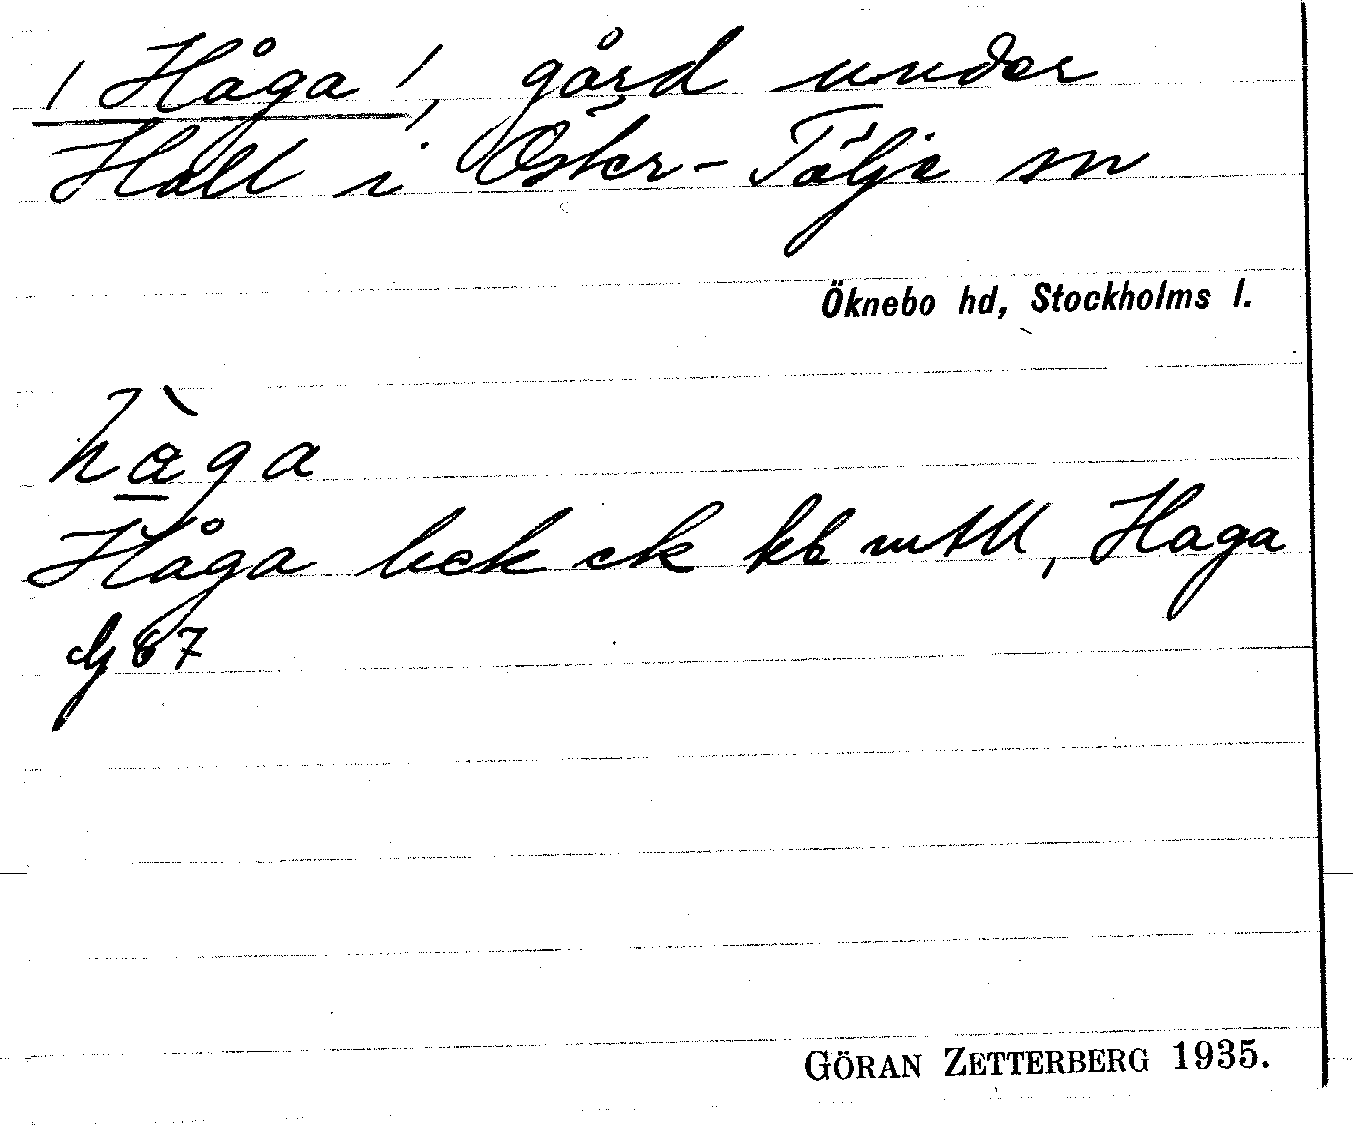 / Håga /, gård under
Hall i Öster-Tälje sn
Öknebo hd, Stockholms l.
hàga
Håga bek ek kb mtll, Haga
dg 87
GÖRAN ZETTERBERG 1935.